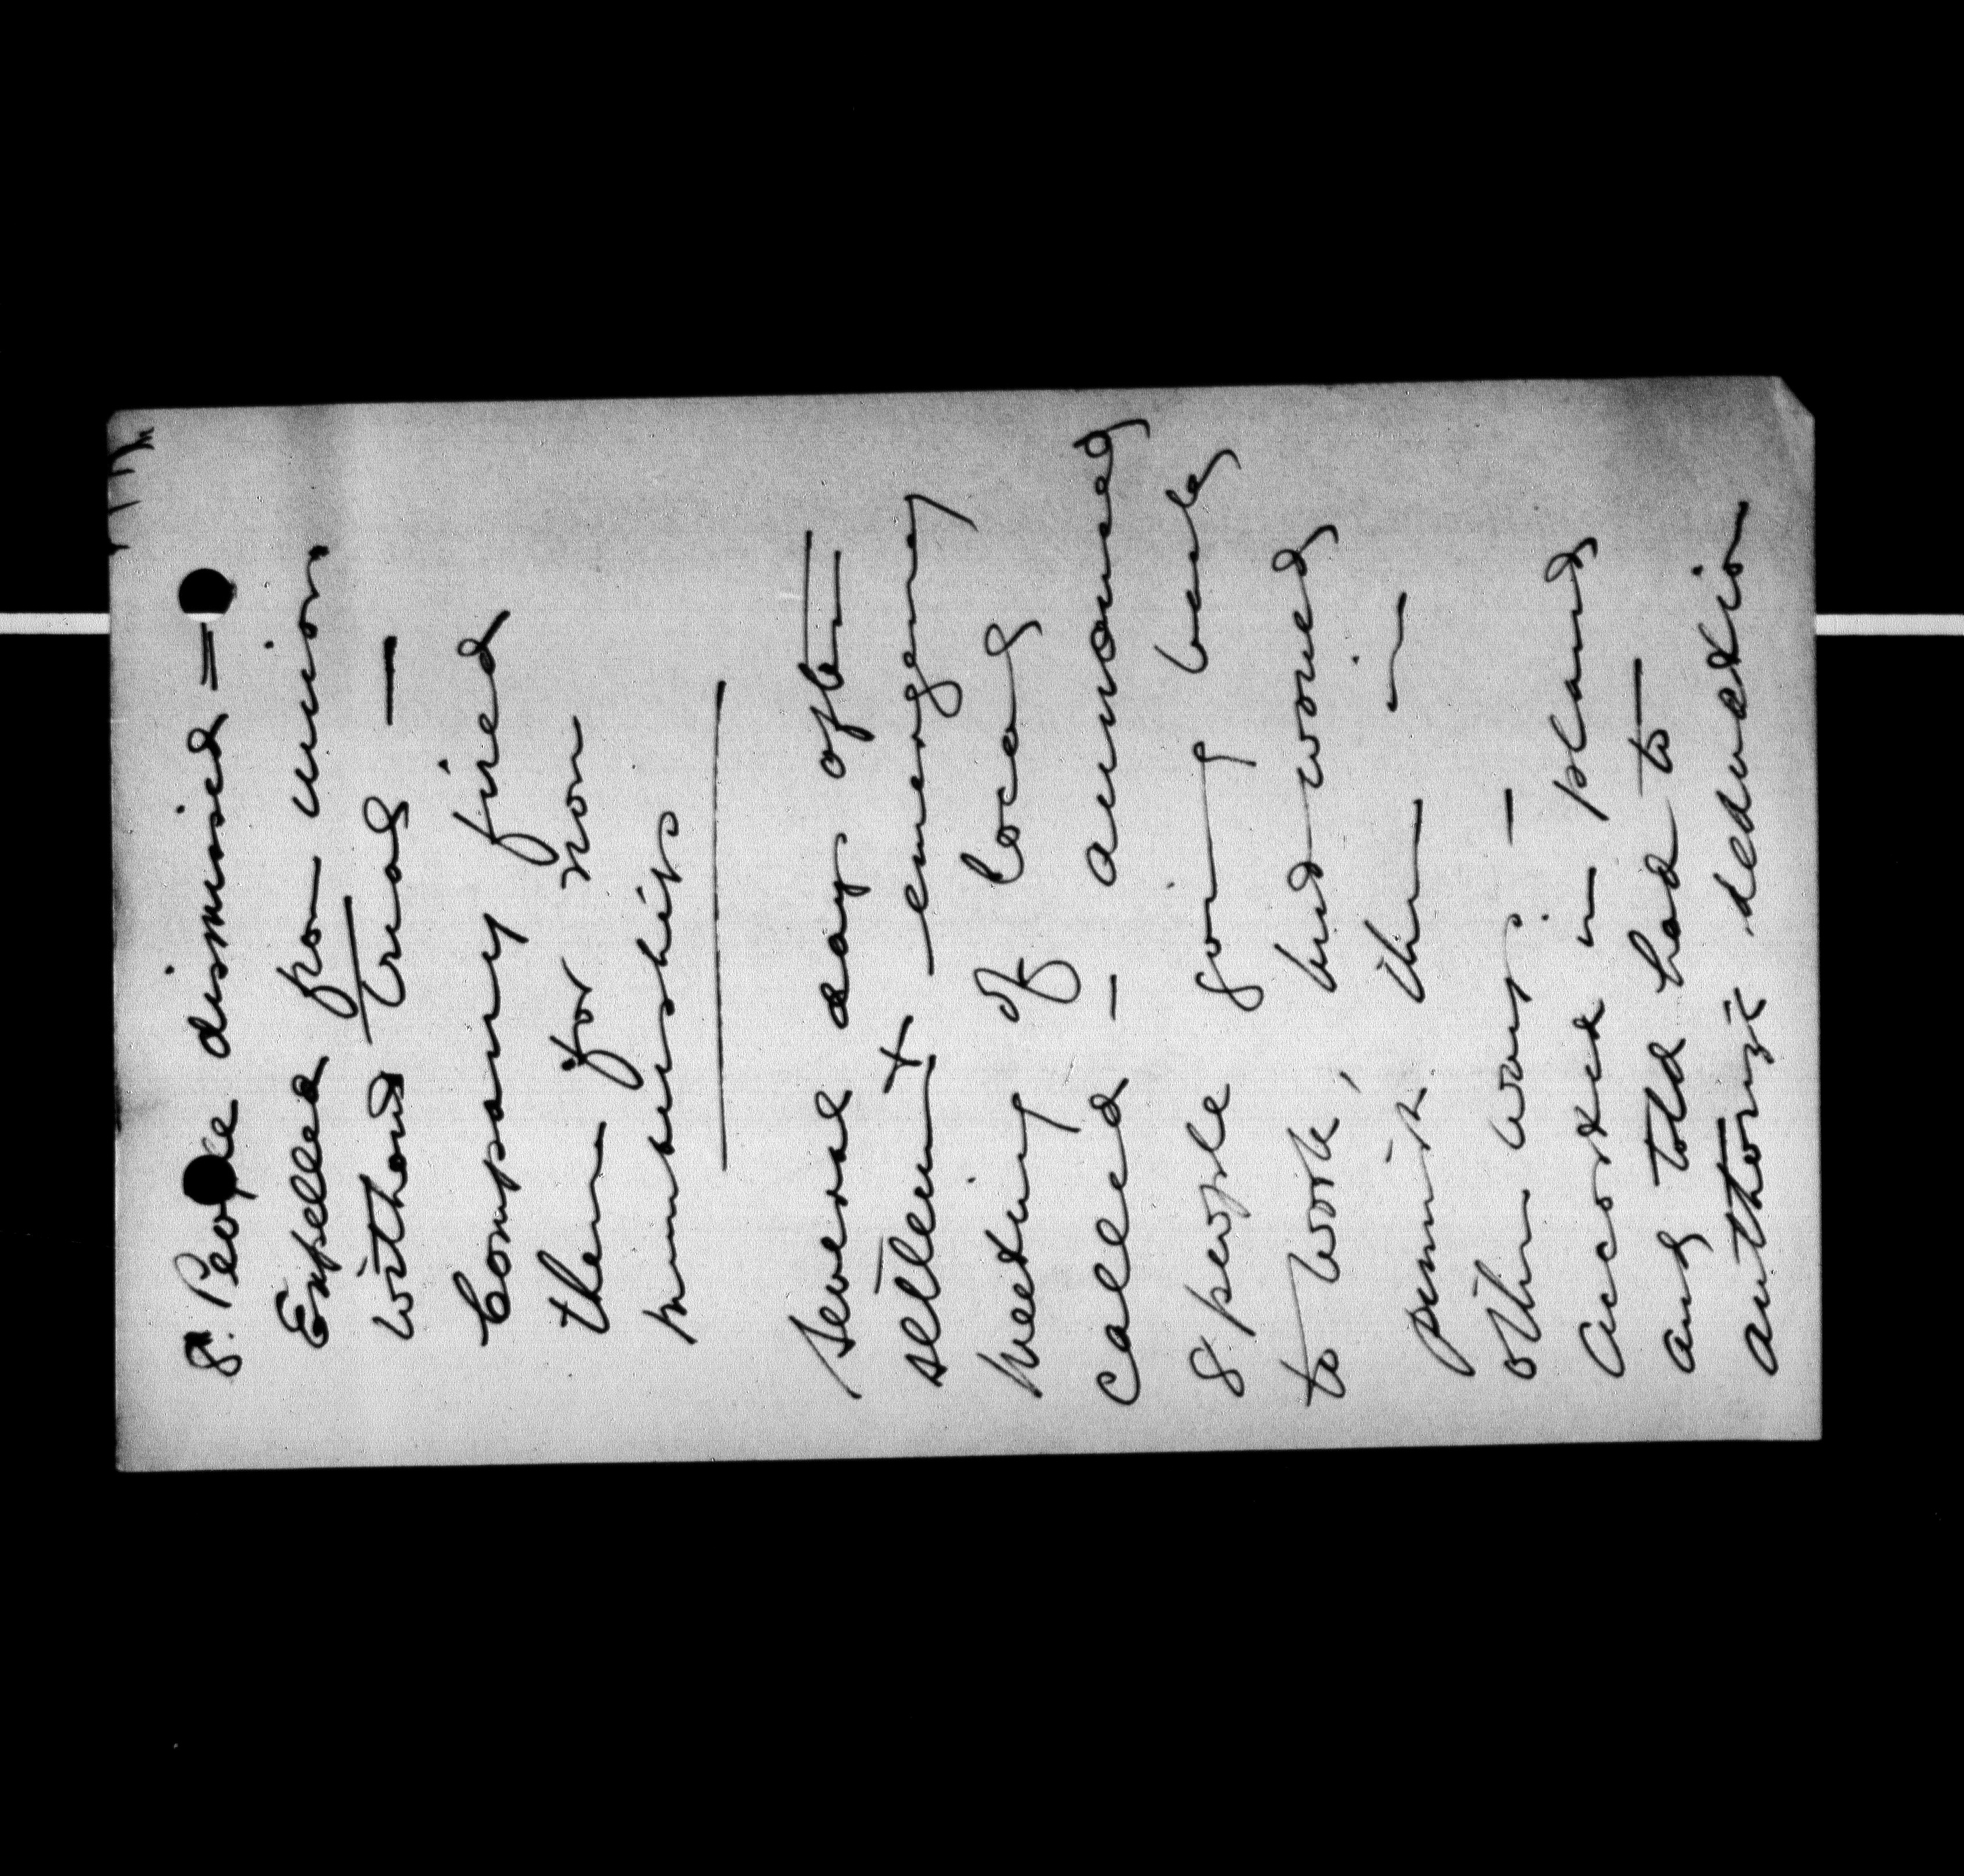 8. People dismissed —
Expelled from union
without trial —
Company fired
them for non
membership
Several days after
settlement emergency
meeting of local
called — announced
8 people going back
to work, but would
punish them in
other ways. —
Accosted in plant
and told had to
authorize deduction